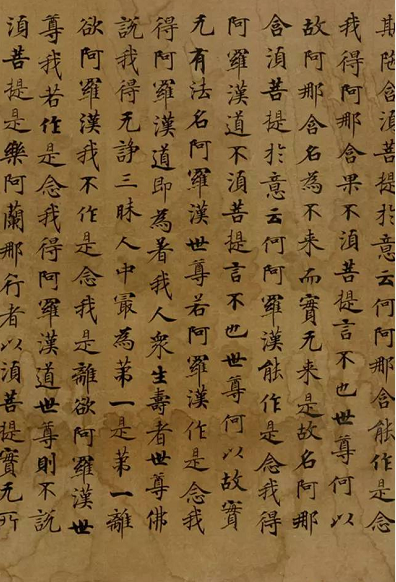 斯陁含湏菩提於意云何阿那含能作是念
我得阿那含果不湏菩提言不也世尊何以
故阿那含名為不来而實无来是故名阿那
含湏菩提於意云何阿羅漢能作是念我得
阿羅漢道不湏菩提言不也世尊何以故實
无有法名阿羅漢世尊若阿羅漢作是念我
得阿羅漢道即為著我人衆生壽者世尊佛
說我得无諍三昧人中冣為苐一是苐一離
欲阿羅漢我不作是念我是離欲阿羅漢世
尊我若作是念我得阿羅漢道世尊則不說
湏菩提是樂阿蘭那行者以湏菩提實无所